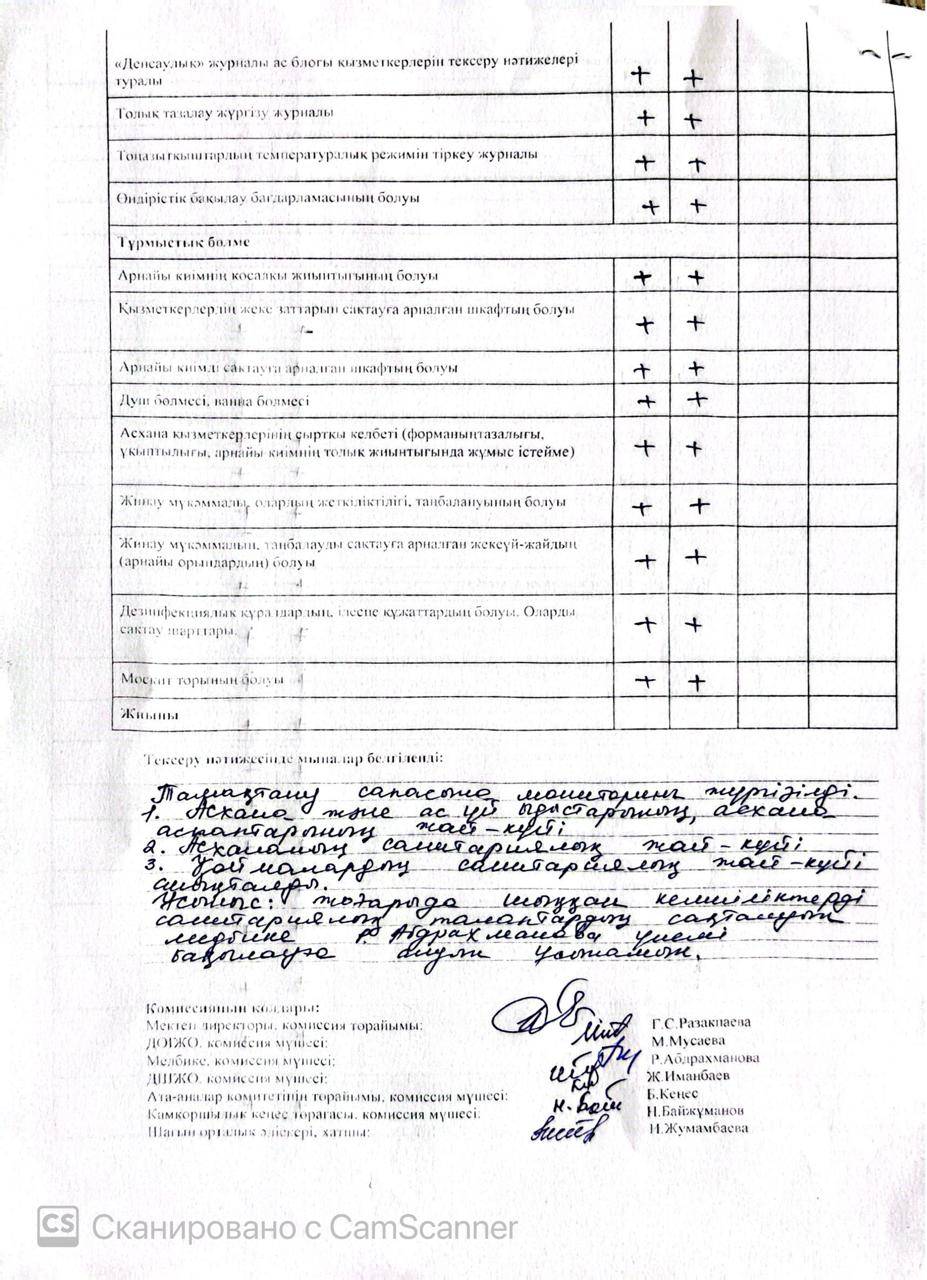 «Денсаулық» журналы ас блогы қызметкерлерін тексеру нәтижелері + +
туралы
Толық тазалау жүргізу журналы + +
Тоңазытқыштардың температуралық режимін тіркеу журналы + +
Өндірістік бақылау бағдарламасының болуы + +
Тұрмыстық бөлме
Арнайы киімнің қосалқы жиынтығының болуы + +
Қызметкерлердің жеке заттарын сақтауға арналған шкафтың болуы + +
Арнайы киімді сақтауға арналған шкафтың болуы + +
Душ бөлмесі, ванна бөлмесі + +
Асхана қызметкерлерінің сыртқы келбеті (форманыңтазалығы, + +
ұқыптылығы, арнайы киімнің толық жиынтығында жұмыс істейме)
Жинау мүкәммалы, олардың жеткіліктілігі, таңбалануының болуы + +
Жинау мүкәммалын, таңбалауды сақтауға арналған жекеүй-жайдың + +
(арнайы орындардың) болуы
Дезинфекциялық құралдардың, ілеспе құжаттардың болуы. Оларды + +
сақтау шарттары.
Москит торының болуы + +
Жиыны
Тексеру нәтижесінде мыналар белгіленді:
Тамақтану сапасына мониторинг жүргізілді.
1. Асхана және ас үй ыдыстарының, асхана
аспаптарының жай-күйі
2. Асхананың санитариялық жай-күйі
3. Қоймалардың санитариялық жай-күйі
анықталды.
Ұсыныс: жоғарыда шыққан кемшіліктерді
санитариялық талаптардың сақталуын
медбике Р. Абдрахманова үнемі
бақылауға алуын ұсынамын.
Комиссияның қолдары:
Мектеп директоры, комиссия торайымы: Г.С.Разакпаева
ДОІЖО, комиссия мүшесі: М.Мусаева
Медбике, комиссия мүшесі: Р.Абдрахманова
ДШЖО, комиссия мүшесі: Ж.Иманбаев
Ата-аналар комитетінің торайымы, комиссия мүшесі: Б.Кеңес
Қамқоршылық кеңес төрағасы, комиссия мүшесі: Н.Бай Н.Байжұманов
Шағын орталық әдіскері, хатшы: И.Жумамбаева
CS Сканировано с CamScanner